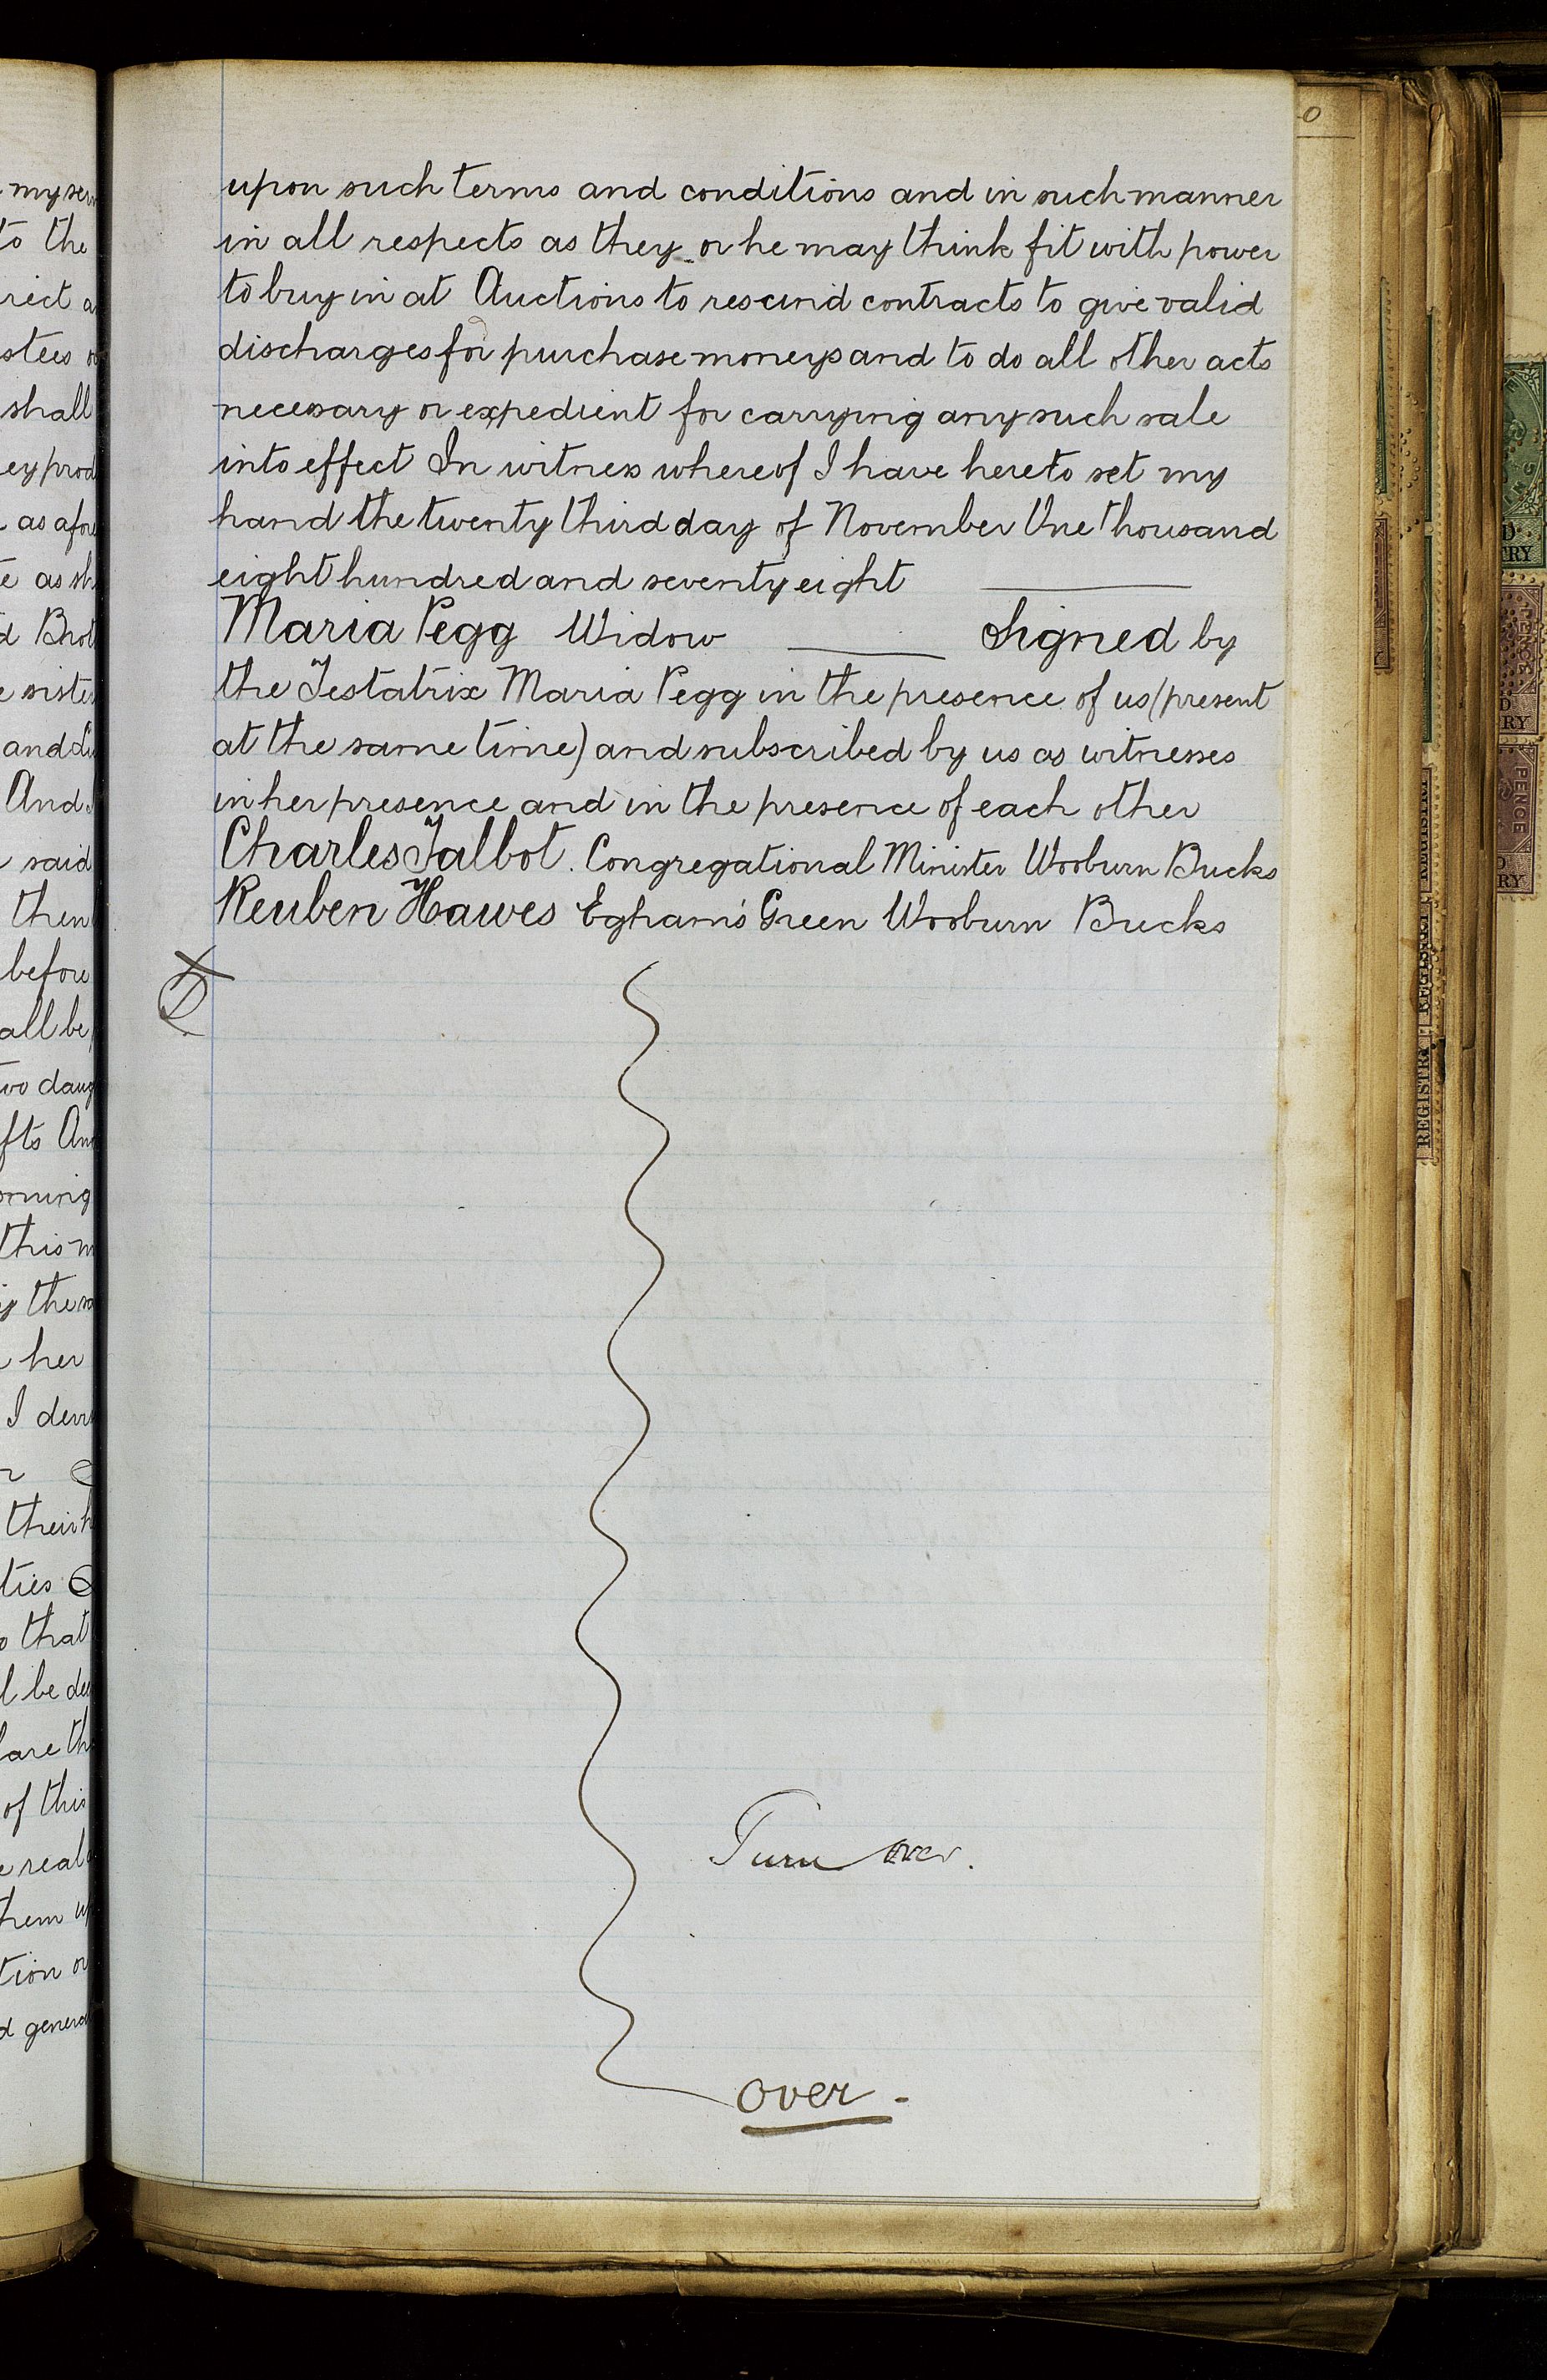 upon such terms and conditions and in such manner
in all respects as they or he may think fit with power
to buy in at Auctions to rescind contracts to give valid
discharges for purchase moneys and to do all other acts
necessary or expedient for carrying any such sale
into effect In witness whereof I have hereto set my
hand the twenty third day of November One thousand
eight hundred and seventy eight
Maria Pegg Widow Signed by
the Testatrix Maria Pegg in the presence of us (present
at the same time) and subscribed by us as witnesses
in her presence and in the presence of each other
Charles Talbot. Congregational Minister Wooburn Bucks
Reuben Hawes Egham's Green Wooburn Bucks
Turn over.
over -